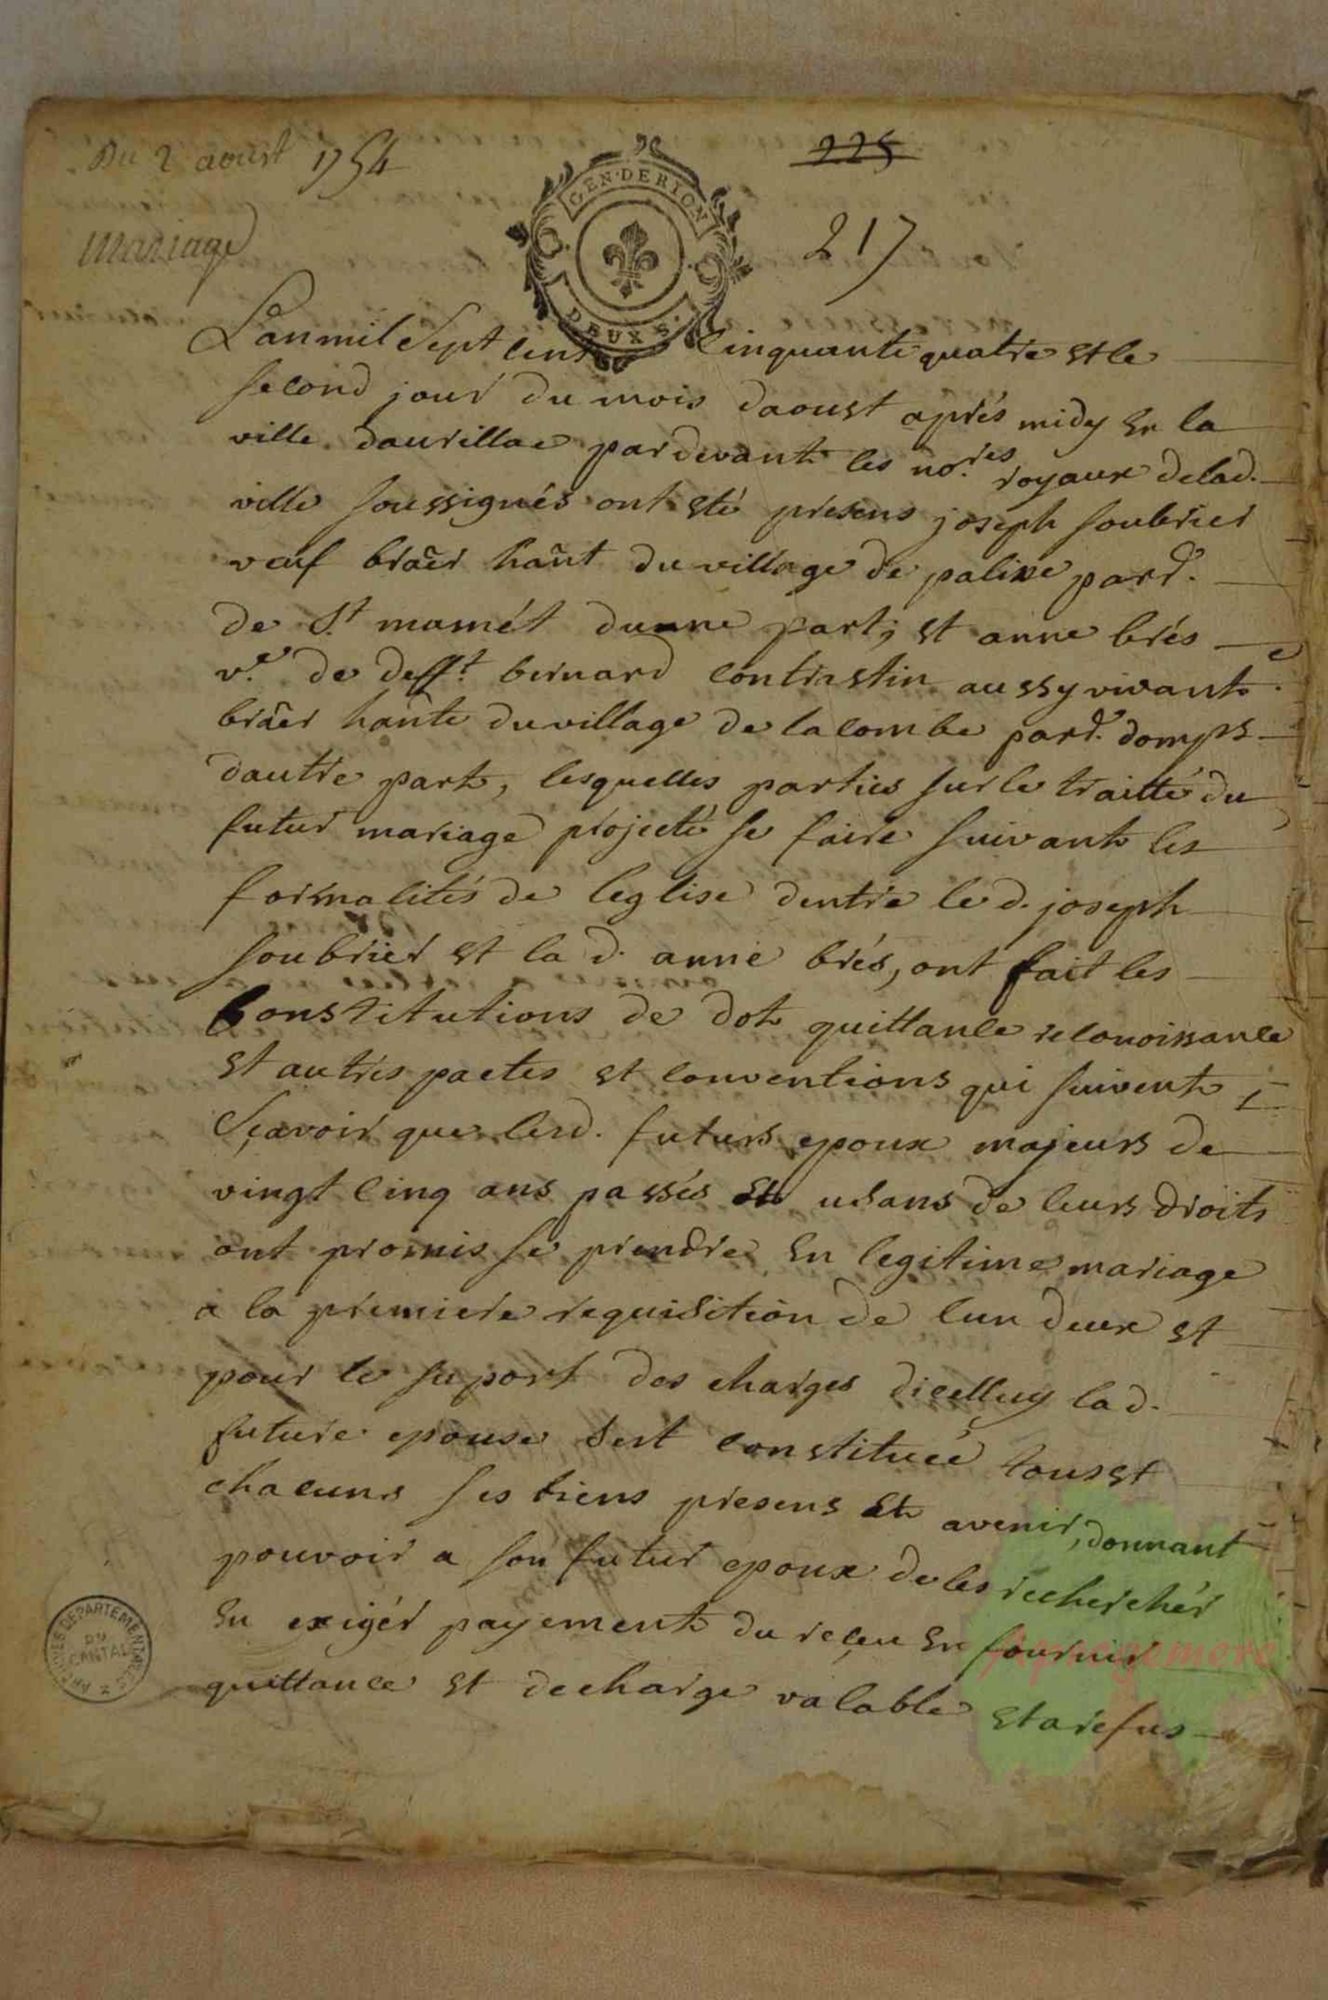 Du 2 aoust 1754
225
GEN. DE RION
217
mariage
DEUX S.
Lan mil Sept Cent Cinquante quatre et le
second jour du mois daoust aprés midy En la
ville daurillac pardevant les no.res royaux de lad.
ville soussignés ont eté présens joseph soubrier
veuf braer hant du village de palixe parr.
de St mamét dunne part; et anne brés
v.e de deff.t bernard Contrastin aussy vivant
braer hante du village de lacombe parr. domps
dautre part, lesquelles parties sur le traitté du
futur mariage projecté se faire suivant les
formalités de leglise dentre led. joseph
soubrier et la d. anne brés, ont fait les
Constitutions de dot quittance reconoissance
et autres pactes et conventions qui suivent
Sçavoir que lesd. futurs epoux majeurs de
vingt Cinq ans passés et usans de leurs droits
ont promis se prendre En legitime mariage
a la premiere requisition de lun deux et
pour le suport des charges dicelluy lad.
future epouse sest constituée tous et
chacuns ses biens presens et avenir, donnant
pouvoir a son futur epoux de les rechercher
En exigér payement du reçeu En fournir
quittance et decharge valable et a refus
ARCHIVES DEPARTEMENTALES
DU
CANTAL